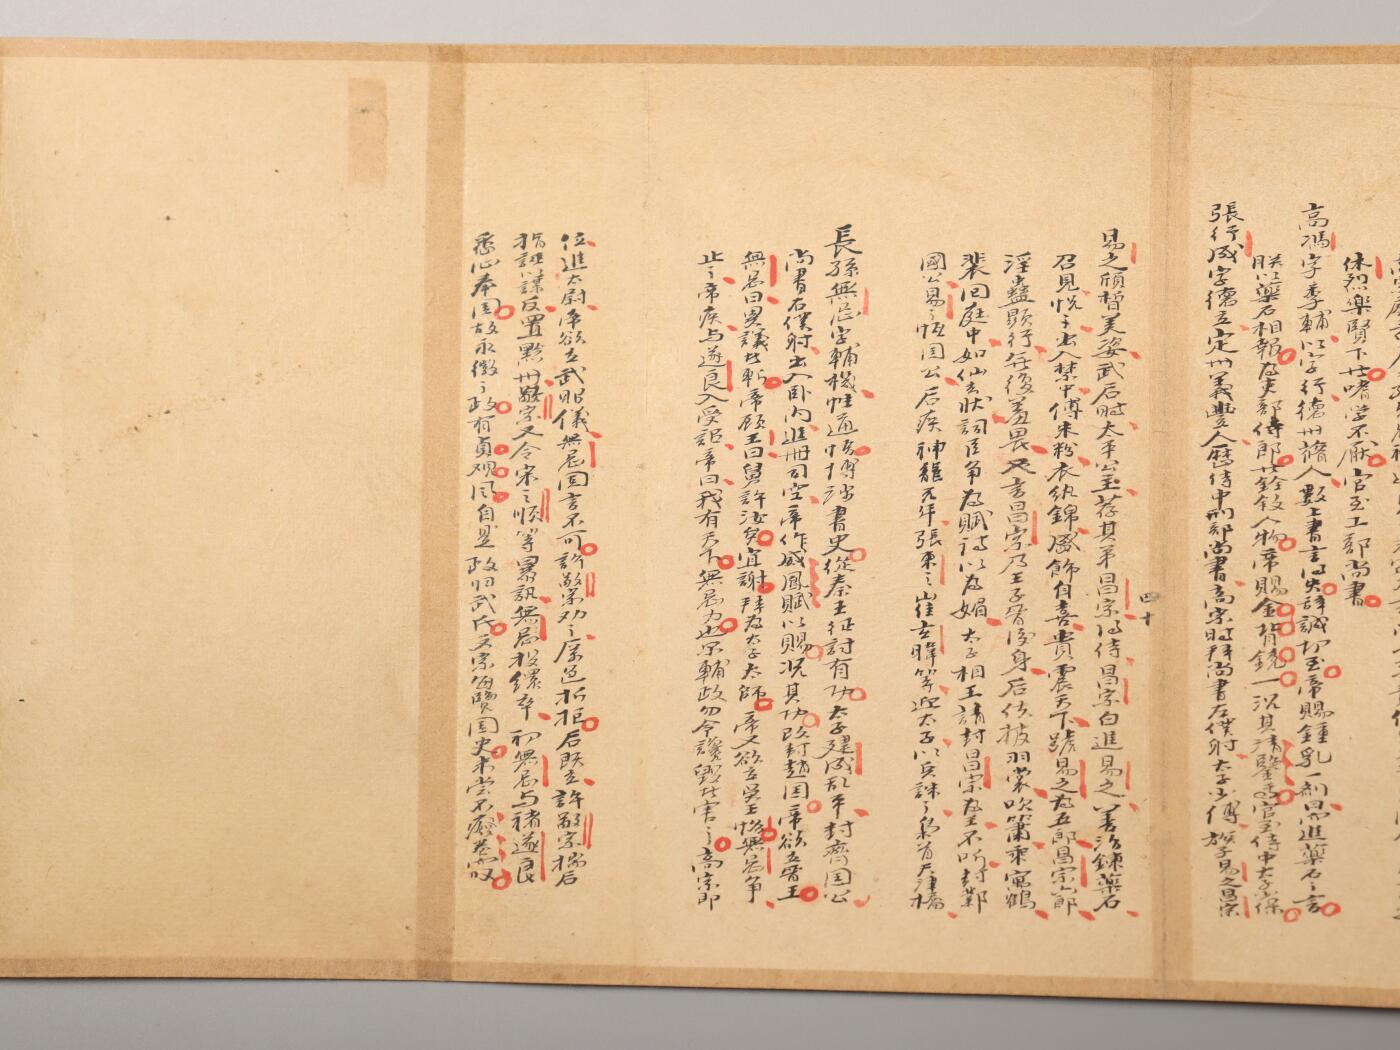 休烈樂賢下士嗜学不厭官至工部尚書
高馮字季輔以字行德州蓨人數上書言得失辞誠切至帝賜鍾乳一劑曰而進藥石之言
朕以藥石相報為吏部侍郎善銓敘人物帝賜金背鏡一况其清鑒焉官至侍中太子少保
張行成字德立定州義豐人歷侍中刑部尚書高宗時拜尚書左僕射太子少傅族子易之昌宗
四十
易之頎皙美姿武后時太平公主荐其弟昌宗得侍昌宗白進易之善治鍊藥石
召見悅之出入禁中傅朱粉衣紈錦盛飾自喜貴震天下號易之為五郎昌宗六郎
淫蠱顯行無復羞畏又言昌宗乃王子晉後身后使披羽裳吹簫乘寓鶴
裴回庭中如仙去狀詞臣爭為賦詩以為媚太子相王請封昌宗為王不听封鄴
國公易之恆国公后疾神龍元年張柬之崔玄暐等迎太子以兵誅之梟首天津橋
長孫無忌字輔機性通悟博涉書史從秦王征討有功太子建成乱平封齊国公
尚書右僕射出入卧内進冊司空帝作威鳳賦以賜况其功改封趙国帝欲立晉王
無忌曰異議者斬帝顧王曰舅許汝矣宜謝拜為太子太師帝又欲立吳王恪無忌爭
止之帝疾与遂良入受詔帝曰我有天下無忌力也尔輔政勿令讒毀者害之高宗即
位進太尉帝欲立武昭儀無忌固言不可許敬宗劝之厲色折拒后既立許敬宗揣后
指誣謀反置黔州敬宗又令宋之順等暴訊無忌投繯卒初無忌与褚遂良
悉心奉国故永徽之政有貞观风自是政归武氏文宗每覽国史未尝不廢卷而叹